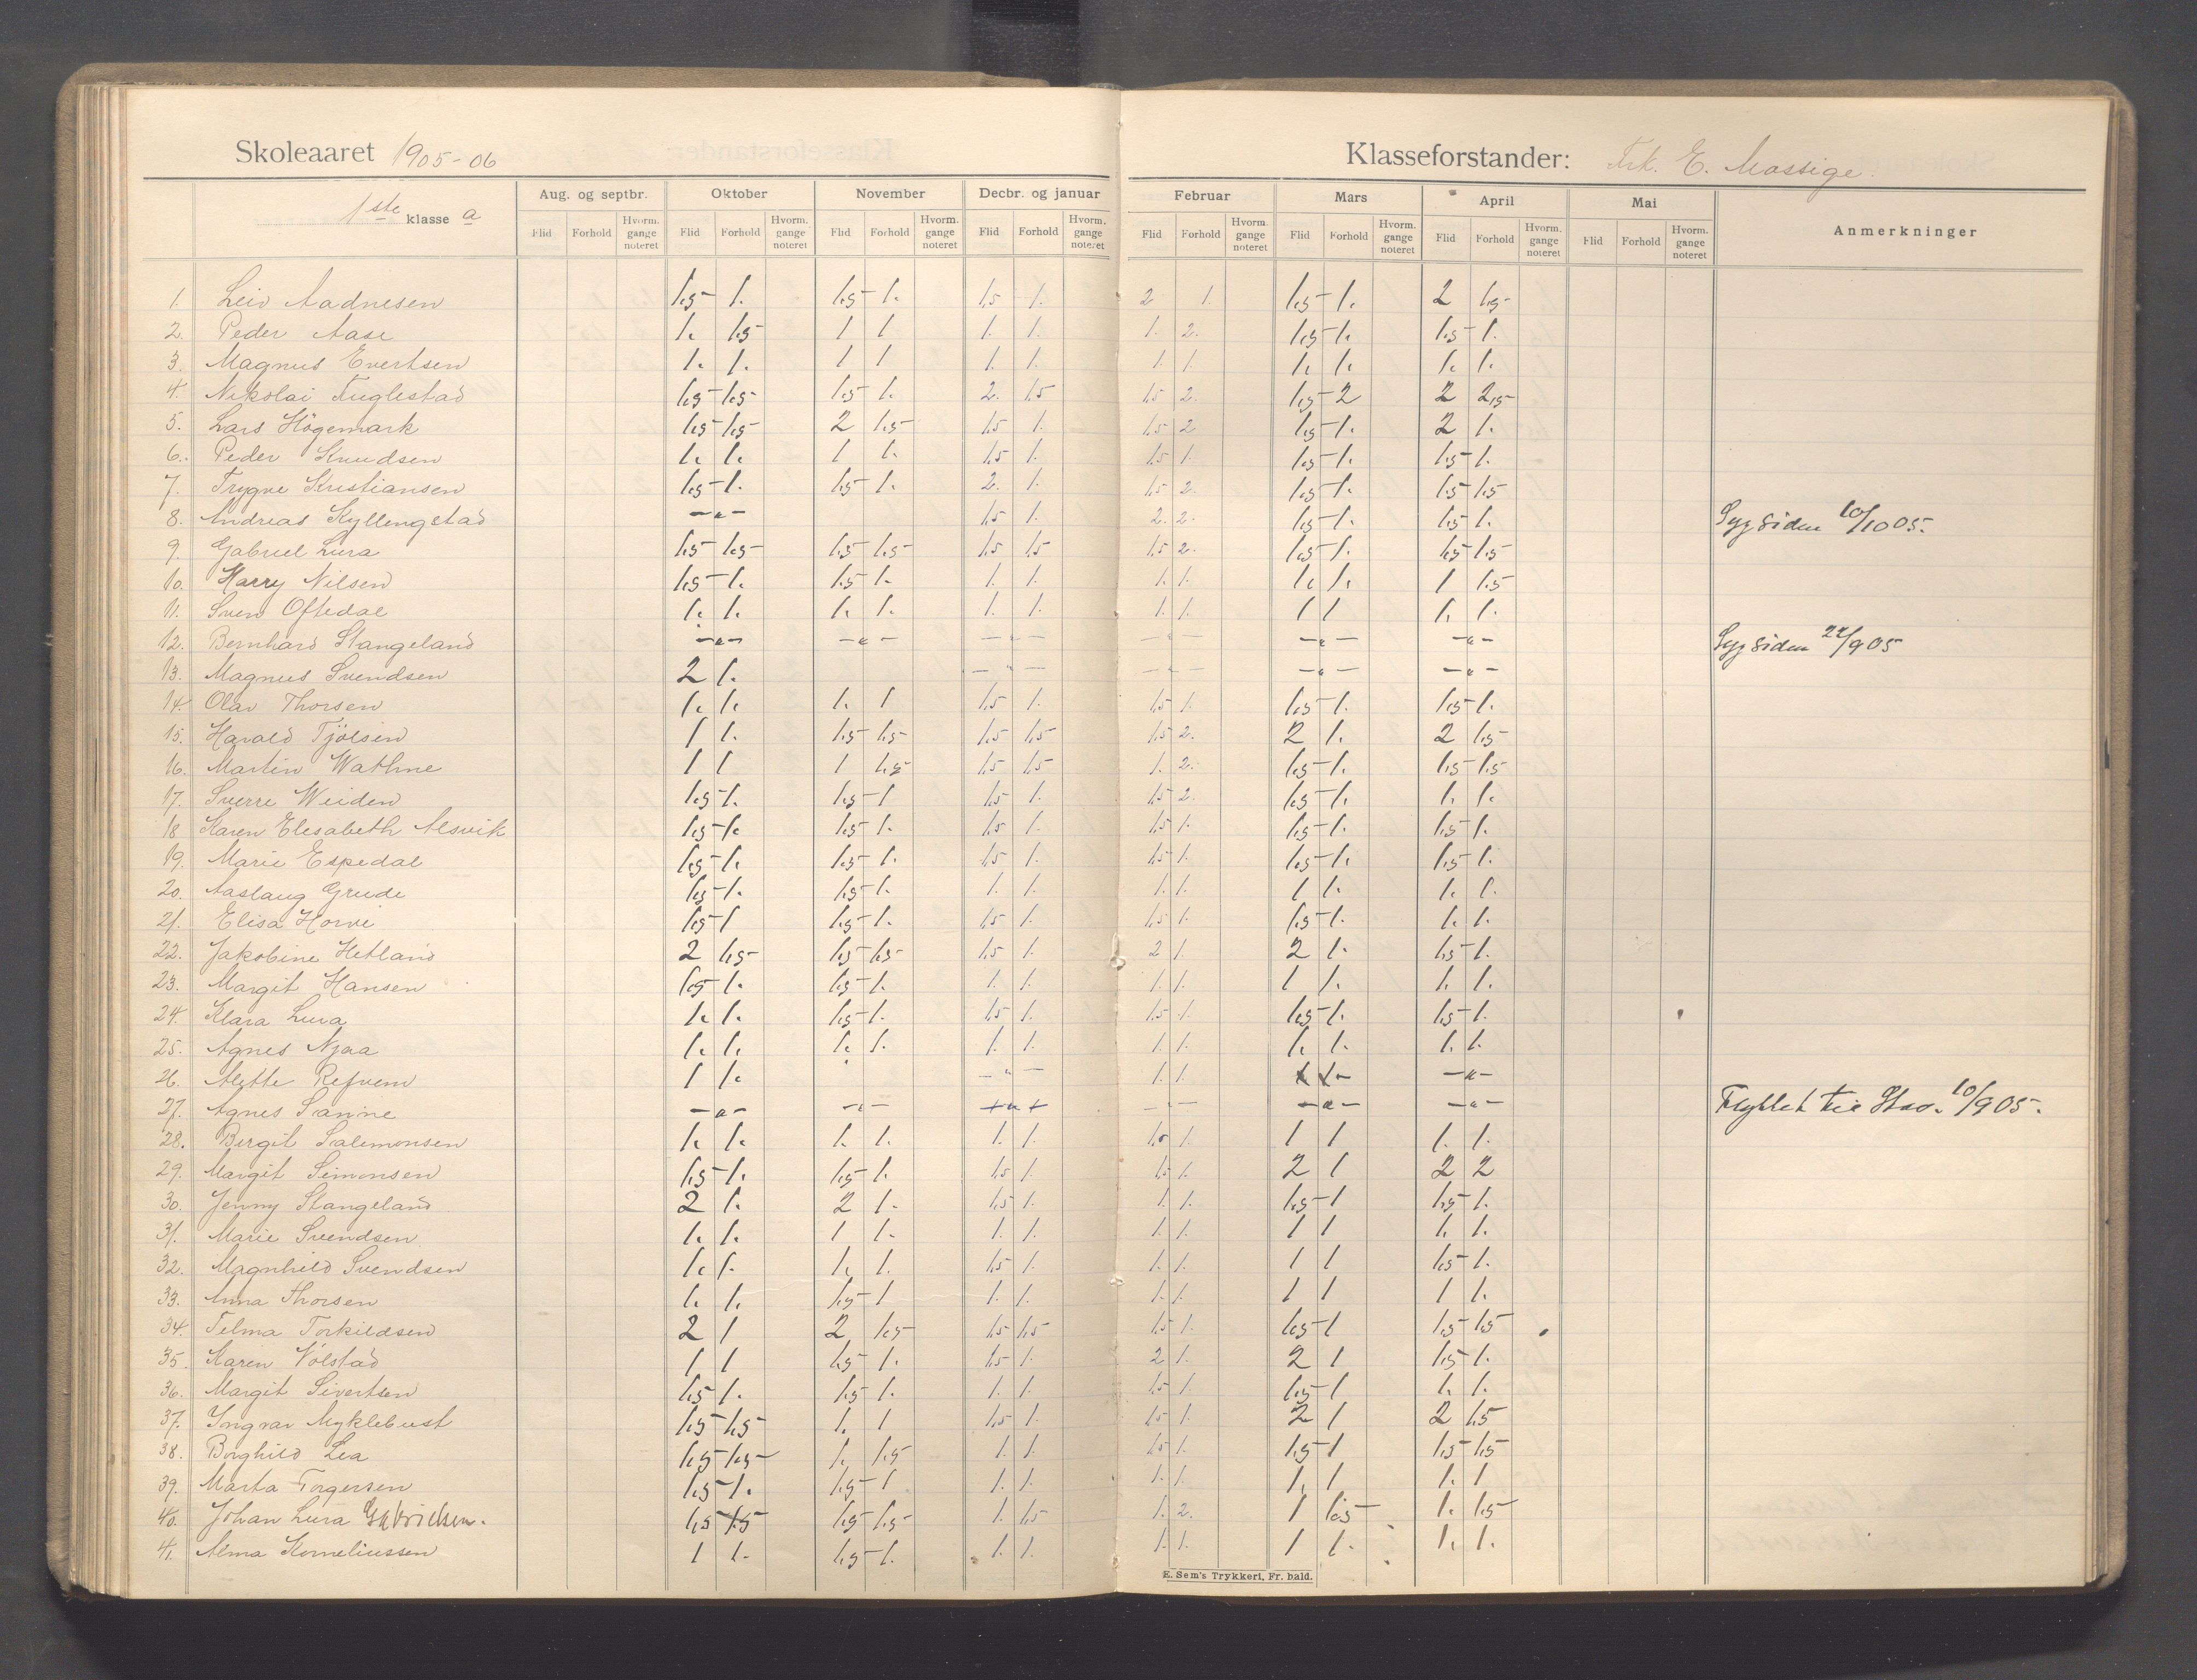 Skoleaaret 1905-06
Klasseforstander: Frk. E. Mossige.
1ste klasse a
Aug. og septbr. Oktober November Decbr. og januar Februar Mars April Mai Anmerkninger
Flid Forhold Hvorm. gange noteret Flid Forhold Hvorm. gange noteret Flid Forhold Hvorm. gange noteret Flid Forhold Hvorm. gange noteret Flid Forhold Hvorm. gange noteret Flid Forhold Hvorm. gange noteret Flid Forhold Hvorm. gange noteret Flid Forhold Hvorm. gange noteret
1. Leiv Aadnesen 1,5 1. 1,5 1. 1,5 1. 2 1. 1,5 1. 2 1,5
2. Peder Aase 1. 1,5 1 1 1. 1. 1. 2. 1,5 1. 1,5 1.
3. Magnus Evertsen 1. 1. 1 1 1. 1. 1. 1. 1. 1. 1. 1.
4. Nikolai Fuglestad 1,5 1,5 1,5 1. 2. 1,5 1,5 2. 1,5 2 2 2,5
5. Lars Högemark 1,5 1,5 2 1,5 1,5 1. 1,5 2 1,5 1. 2 1.
6. Peder Knudsen 1. 1. 1 1. 1,5 1. 1,5 1. 1,5 1. 1,5 1.
7. Trygve Kristiansen 1,5 1. 1,5 1. 2. 1. 1,5 2. 1,5 1. 1,5 1,5
8. Andreas Kyllengstad -"- 1,5 1. 2. 2. 1,5 1. 1,5 1. Syg siden 10/10 05.
9. Gabriel Lura 1,5 1,5 1,5 1,5 1,5 1,5 1,5 2. 1,5 1. 1,5 1,5
10. Harry Nilsen 1,5 1. 1,5 1. 1. 1. 1. 1. 1. 1. 1 1,5
11. Sven Oftedal 1. 1. 1. 1. 1. 1. 1. 1. 1 1 1. 1.
12. Bernhard Stangeland -"- -"- -"- -"- -"- -"- Syg siden 22/9 05
13. Magnus Svendsen 2 1. -"- -"- -"- -"-
14. Olav Thorsen 1. 1. 1. 1 1,5 1. 1,5 1. 1,5 1. 1,5 1.
15. Harald Tjölsen 1 1. 1,5 1,5 1,5 1,5 1,5 2. 2 1. 2 1,5
16. Martin Wathne 1 1 1 1,5 1,5 1,5 1. 2. 1,5 1. 1,5 1,5
17. Sverre Weiden 1,5 1. 1,5 1 1,5 1. 1,5 2. 1,5 1. 1. 1.
18 Karen Elesabeth Alsvik 1,5 1. 1,5 1. 1,5 1. 1,5 1. 1,5 1. 1,5 1.
19. Marie Espedal 1,5 1. 1,5 1. 1,5 1. 1,5 1. 1,5 1. 1,5 1.
20. Aaslaug Grude 1,5 1. 1,5 1. 1. 1. 1. 1. 1 1. 1. 1.
21. Elisa Horve 1,5 1 1,5 1. 1,5 1. 1,5 1. 1,5 1. 1. 1.
22. Jakobine Hetland 2 1,5 1,5 1,5 1,5 1. 2 1. 2 1. 1,5 1.
23. Margit Hansen 1,5 1. 1,5 1. 1. 1. 1. 1. 1 1. 1. 1.
24. Klara Lura 1. 1. 1,5 1. 1,5 1. 1,5 1. 1,5 1. 1,5 1.
25. Agnes Njaa 1. 1. 1. 1. 1. 1. 1. 1. 1. 1. 1. 1.
26. Alette Refvem 1 1. -"- 1. 1. -"-
27. Agnes Sanne -"- -"- -"- -"- -"- -"- Flyttet til Stav. 10/9 05.
28. Bergit Salemonsen 1. 1. 1. 1. 1. 1. 1,5 1. 1 1 1. 1.
29. Margit Simonsen 1,5 1. 1,5 1. 1,5 1. 1,5 1. 2 1 2 2
30. Jenny Stangeland 2 1. 2 1. 1,5 1. 1. 1. 1,5 1 1,5 1.
31. Marie Svendsen 1. 1. 1 1. 1. 1. 1. 1. 1 1 1. 1.
32. Magnhild Svendsen 1. 1. 1. 1. 1,5 1. 1. 1. 1 1 1,5 1.
33. Anna Thorsen 1. 1. 1,5 1 1. 1. 1. 1. 1 1 1 1.
34. Telma Torkildsen 2 1 2 1,5 1,5 1,5 1,5 1. 1,5 1 1,5 1,5
35. Karen Völstad 1 1 1,5 1. 1,5 1. 2 1. 2 1 1,5 1.
36. Margit Sivertsen 1,5 1. 1,5 1. 1. 1. 1,5 1. 1,5 1 1. 1.
37. Yngvar Myklebust 1,5 1,5 1. 1 1,5 1. 1,5 1. 2 1 2 1,5
38. Borghild Lea 1,5 1,5 1. 1,5 1. 1. 1,5 1. 1,5 1 1,5 1,5
39. Marta Torgersen 1,5 1. 1,5 1 1. 1. 1. 1. 1. 1 1. 1
40. Johan Lura Gabrielsen. 1,5 1,5 1,5 1,5 1. 1,5 1. 2. 1 1,5 1. 1,5
41. Alma Korneliussen 1 1. 1,5 1. 1. 1. 1. 1. 1 1. 1. 1.
E. Sem's Trykkeri, Fr. hald.